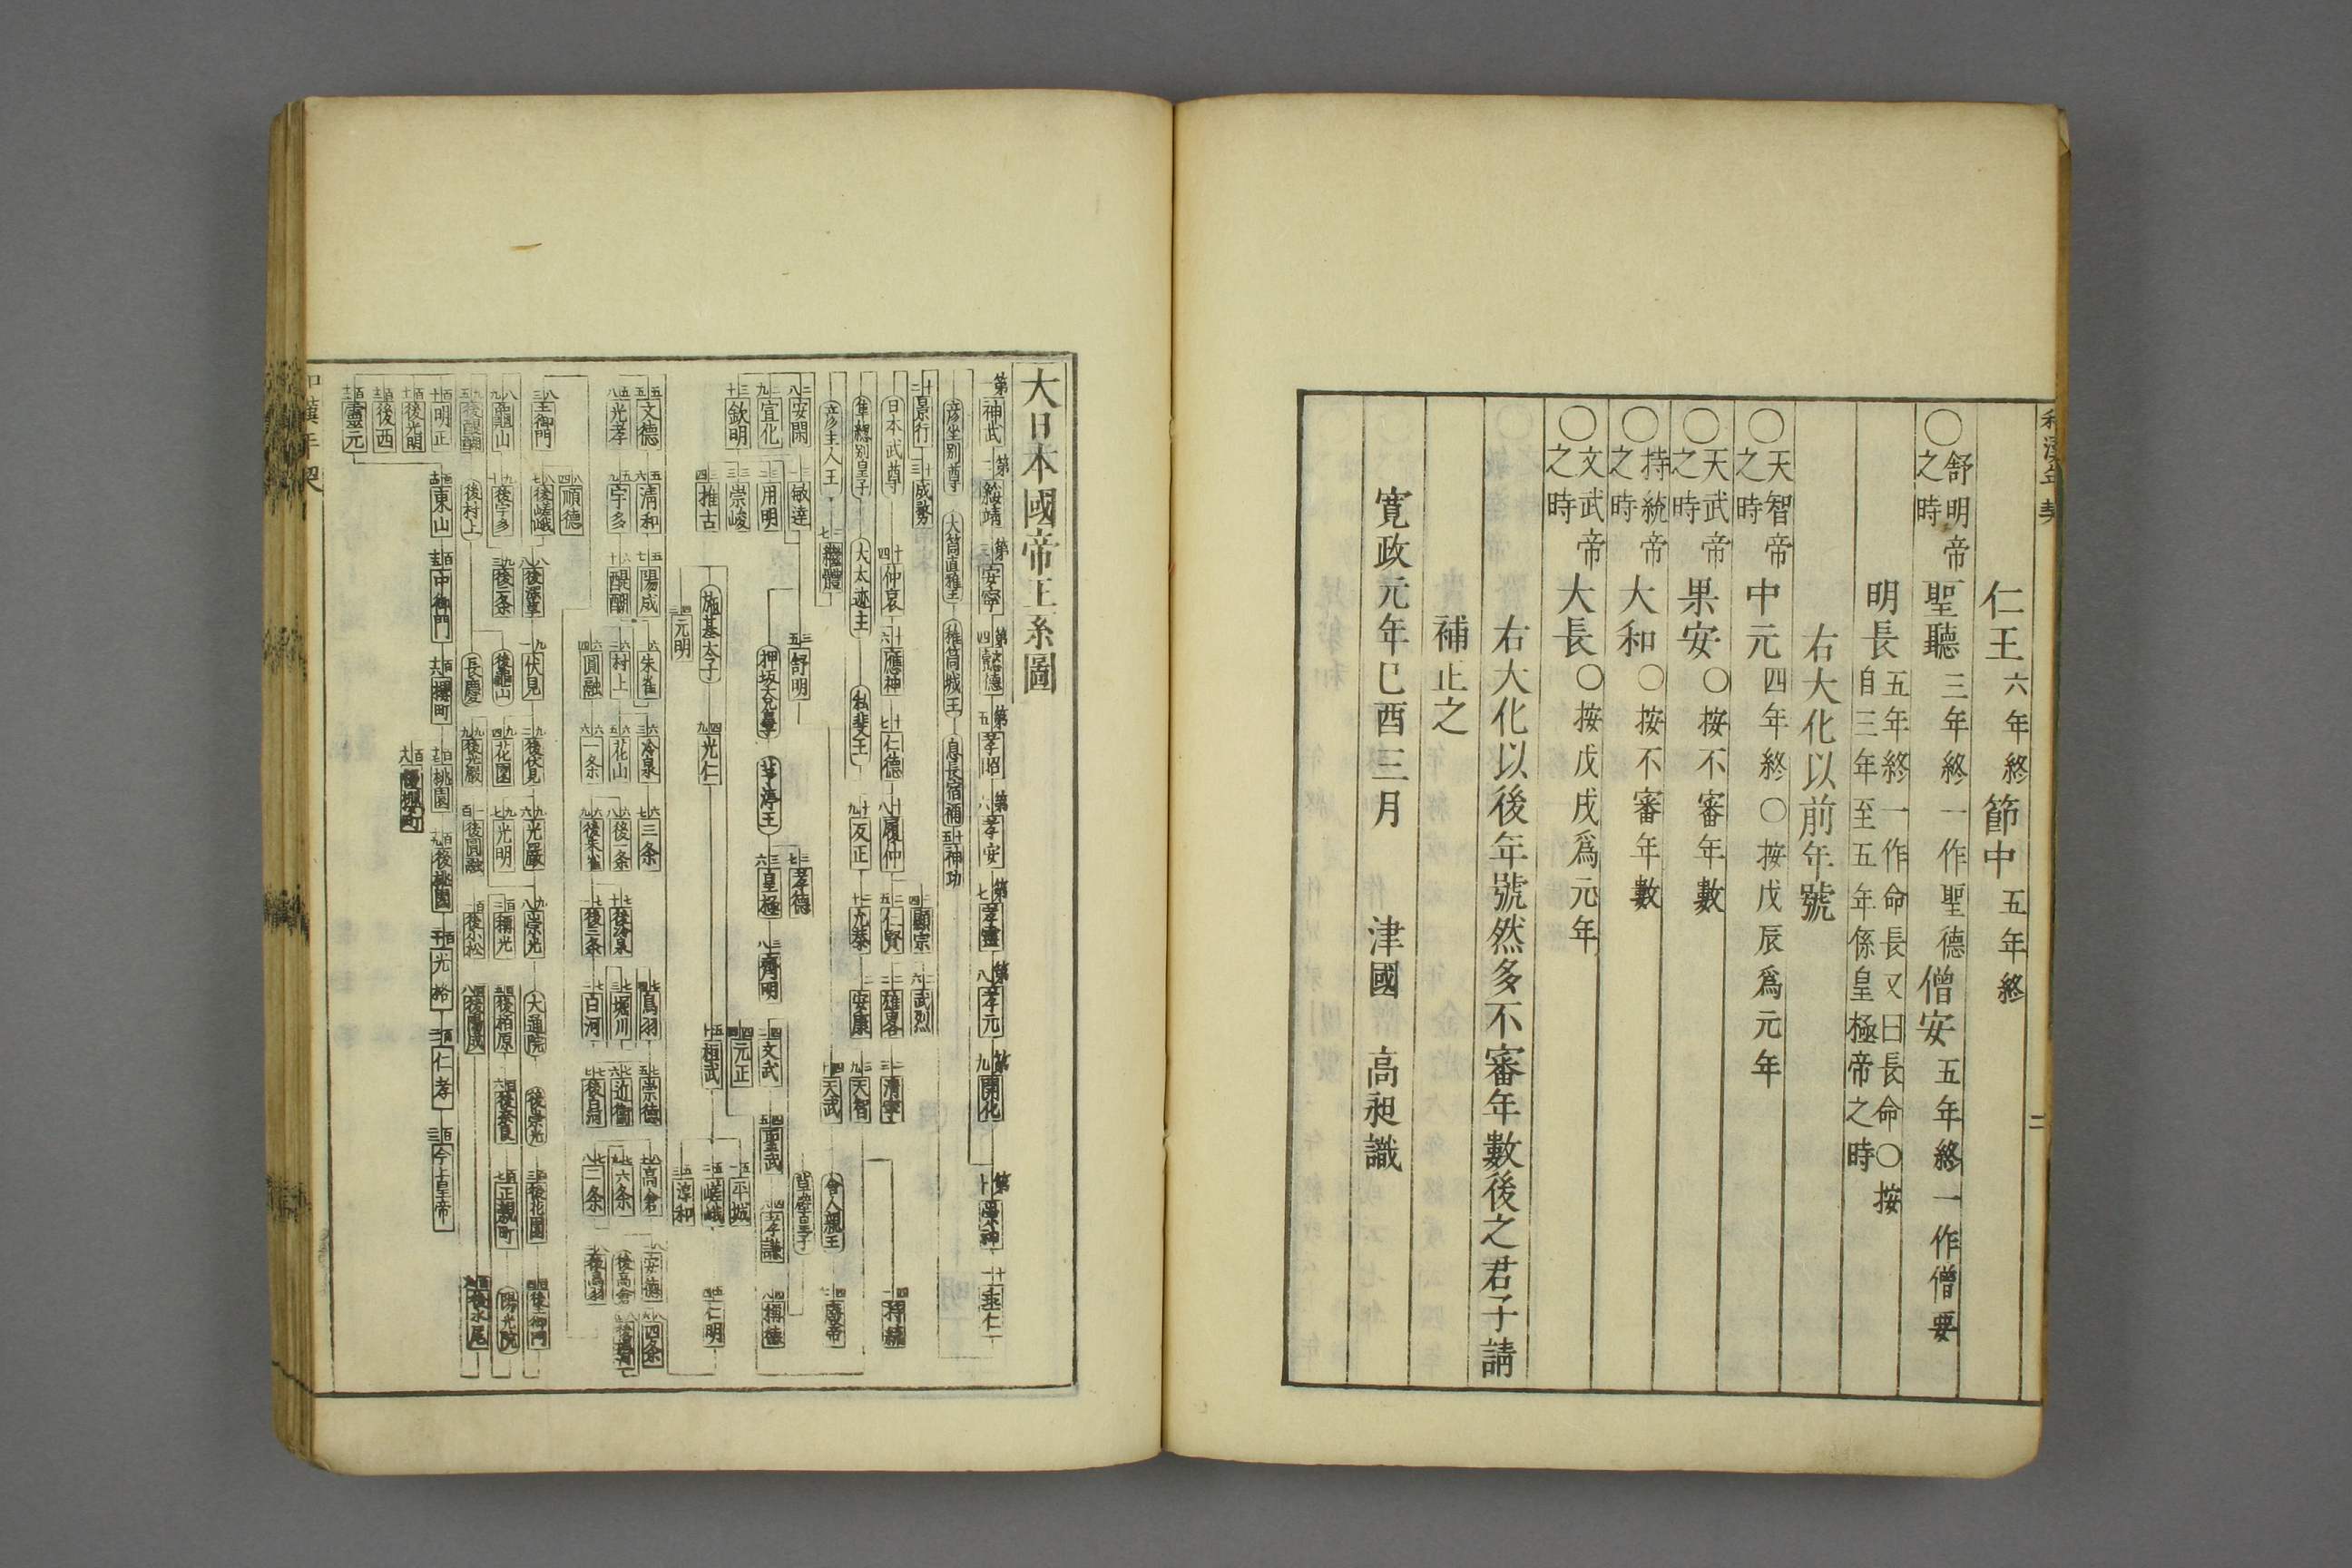 和漢年契
二
仁王六年終節中五年終
〇舒明帝之時聖聽三年終一作聖德僧安五年終一作僧要
明長五年終一作命長又曰長命〇按自三年至五年係皇極帝之時
右大化以前年號
〇天智帝之時中元四年終〇按戊辰爲元年
〇天武帝之時果安〇按不審年數
〇持統帝之時大和〇按不審年數
〇文武帝之時大長〇按戊戌爲元年
右大化以後年號然多不審年數後之君子請
補正之
寛政元年巳酉三月 津國 高昶識
大日本國帝王系圖
第一神武 第二綏靖 第三安寧 第四懿德 第五孝昭 第六孝安 第七孝靈 第八孝元 第九開化 第十崇神 十一垂仁
彦坐別尊 大筒直稚王 稚筒城王 息長宿禰 十五神功
十二景行 十三成務 二十四顯宗 二十六武烈
日本武尊 十四仲哀 十六應神 十七仁德 十八履仲 二十五仁賢 二十二雄畧 二十三清寧 四十一持統
隼總別皇子 大太迹主 私斐王 十九反正 二十允恭 二十一安康 三十九天智
彦主人王 二十七繼體 四十天武 舍人親王 四十七廢帝
二十八安閑 三十一敏達 三十五舒明 三十七孝德 草壁皇子
二十九宣化 三十二用明 押坂大兄尊 茅渟王 三十六皇極 三十八齊明 四十二文武 四十五聖武 四十六孝謙 四十八稱德
三十欽明 三十三崇峻 四十四元正 五十一平城
三十四推古 施基太子 四十九光仁 五十桓武 五十二嵯峨 五十四仁明
四十三元明 五十三淳和
五十五文德 五十六清和 五十七陽成 六十一朱雀 六十三冷泉 六十七三条 七十四鳥羽 七十五崇德 八十高倉 八十一安德 八十六四条
五十八光孝 五十九宇多 六十醍醐 六十二村上 六十五花山 六十八後一条 七十後冷泉 七十三堀川 七十六近衞 七十九六条 後高倉 八十五後堀河
六十四圓融 六十六一条 六十九後朱雀 七十一後三条 七十二白河 七十七後白河 七十八二条 八十二後鳥羽
八十四順德
八十三土御門 八十七後嵯峨 八十八後深草 九十一伏見 九十二後伏見 九十六光嚴 九十八崇光 大通院 後崇光 百三後花園 百四後土御門
八十九龜山 九十後宇多 九十三後二条 後龜山 九十四花園 九十七光明 百二稱光 百五後栢原 百六後奈良 百七正親町 陽光院
九十五後醍醐 後村上 長慶 九十九後光嚴 百一後圓融 百後小松 百八後陽成 百九後水尾
百十明正 百十四東山 百十五中御門 百十六櫻町 百十七桃園 百十九後桃園 百二十光格 百二十一仁孝 百二十二今上皇帝
百十一後光明 百十八後櫻町
百十二後西
百十三靈元
和漢年契